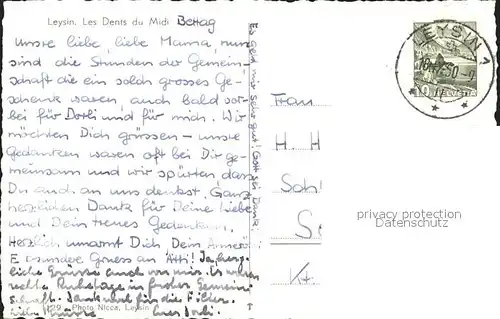 Leysin. Les Dents du Midi Bettag
Unsre liebe, liebe Mama, nun
sind die Stunden der Gemein-
schaft die ein solch grosses Ge-
schenk waren, auch bald vor-
bei für Dorli und für mich. Wir
möchten Dich grüssen - unsre
Gedanken waren oft bei Dir ge-
meinsam und wir spürten dass
Du auch an uns denkst. Ganz
herzlichen Dank für Deine Liebe
und Dein treues Gedenken.
Herzlich umarmt Dich Dein
Gruess an Ätti! Ja, herz-
liche Grüsse auch von mir. Es waren
rechte Ruhetage in froher Gemein-
schaft. Dank und für die
Liebe Grüsse Euer Dorli.
129 Photo Nicca, Leysin
Es geht mir sehr gut! Gott sei Dank.
LEYSIN 1
50
HELVETIA
Frau
H H
Sch
S
Kt
privacy protection
Datenschutz